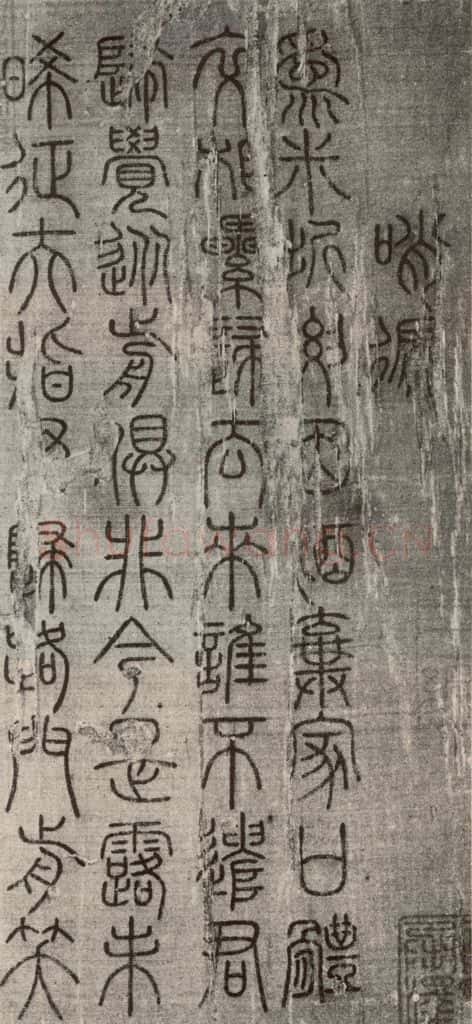 哨遍
爲米折腰因酒棄家口體
交相纍歸去來誰不遣君
歸覺從前俱非今是露未
晞征夫指予歸路門前笑